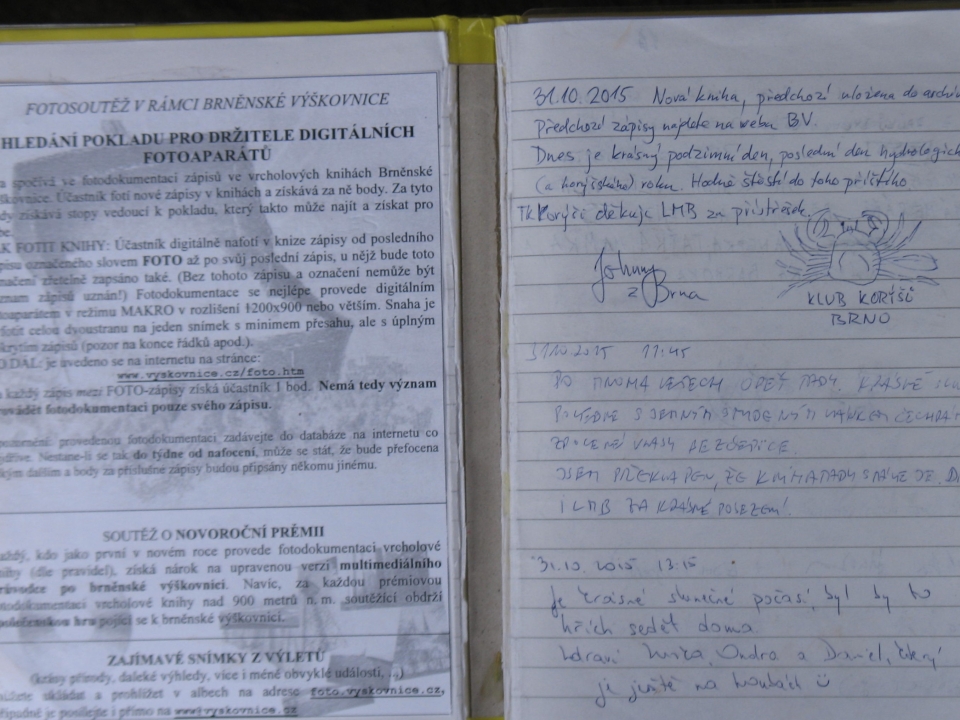 FOTOSOUTĚŽ V RÁMCI BRNĚNSKÉ VÝŠKOVNICE
HLEDÁNÍ POKLADU PRO DRŽITELE DIGITÁLNÍCH
FOTOAPARÁTŮ
spočívá ve fotodokumentaci zápisů ve vrcholových knihách Brněnské
Účastník fotí nové zápisy v knihách a získává za ně body. Za tyto
získává stopy vedoucí k pokladu, který takto může najít a získat pro
K FOTIT KNIHY: Účastník digitálně nafotí v knize zápisy od posledního
označeného slovem FOTO až po svůj poslední zápis, u nějž bude toto
zřetelně zapsáno také. (Bez tohoto zápisu a označení nemůže být
zápisů uznán!) Fotodokumentace se nejlépe provede digitálním
v režimu MAKRO v rozlišení 1200x900 nebo větším. Snaha je
celou dvoustranu na jeden snímek s minimem přesahu, ale s úplným
zápisů (pozor na konce řádků apod.).
DÁL: je uvedeno se na internetu na stránce:
www.vyskovnice.cz/foto.htm
každý zápis mezi FOTO-zápisy získá účastník 1 bod. Nemá tedy význam
fotodokumentaci pouze svého zápisu.
provedenou fotodokumentaci zadávejte do databáze na internetu co
Nestane-li se tak do týdne od nafocení, může se stát, že bude přefocena
dalším a body za příslušné zápisy budou připsány někomu jinému.
SOUTĚŽ O NOVOROČNÍ PRÉMII
kdo jako první v novém roce provede fotodokumentaci vrcholové
(dle pravidel), získá nárok na upravenou verzi multimediálního
po brněnské výškovnici. Navíc, za každou prémiovou
vrcholové knihy nad 900 metrů n. m. soutěžící obdrží
hru pojící se k brněnské výškovnici.
ZAJÍMAVÉ SNÍMKY Z VÝLETŮ
(krásy přírody, daleké výhledy, více i méně obvyklé události, ...)
skládat a prohlížet v albech na adrese foto.vyskovnice.cz,
posílejte i přímo na www.vyskovnice.cz
31.10.2015 Nová kniha, předchozí uložena do
Předchozí zápisy najdete na webu BV.
Dnes je krásný podzimní den, poslední den
(a korýšského) roku. Hodně štěstí do toho příštího
TK Korýši děkuje LMB za přístřešek.
Johnny
z Brna
KLUB KORÝŠŮ
BRNO
31.10.2015 11:45
PO MNOHA LETECH OPĚT TADY. KRÁSNÉ
POHODNÉ S JEMNÝM
VLASY
JSEM PŘEKVAPEN, ŽE KNIHA TADY STÁLE JE.
I LMB ZA KRÁSNÉ POSEZENÍ!
31.10.2015 13:15
Je krásné slunečné počasí, byl by to
hřích sedět doma
Zdraví Ondra a Daniel, který
je ještě na houbách